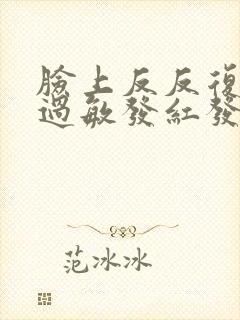 臉上反反復
過敏發紅發
范冰冰